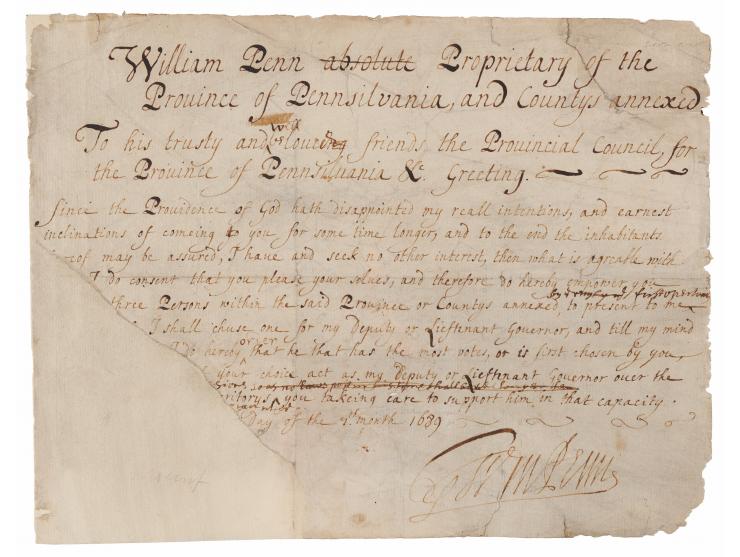 William Penn absolute Proprietary of the
Province of Pennsilvania, and Countys annexed.
well
To his trusty and beloved friends the Provincial Council, for
the Province of Pennsilvania &c. Greeting.
Since the Providence of God hath disappointed my reall intentions, and earnest
inclinations of comeing to you for some time longer, and to the end the inhabitants
may be assured, I have and seek no other interest, then what is agreable with
I do consent that you please your selves, and therefore do hereby empower you
three Persons within the said Province or Countys annexed to present to me
I shall chuse one for my Deputy or Lieftenant Governor, and till my mind
order
I do hereby that he that has the most votes, or is first chosen by you,
your choice act as my Deputy or Lieftenant Governor over the
you takeing care to support him in that capacity.
Day of the month 1689
Wm Penn